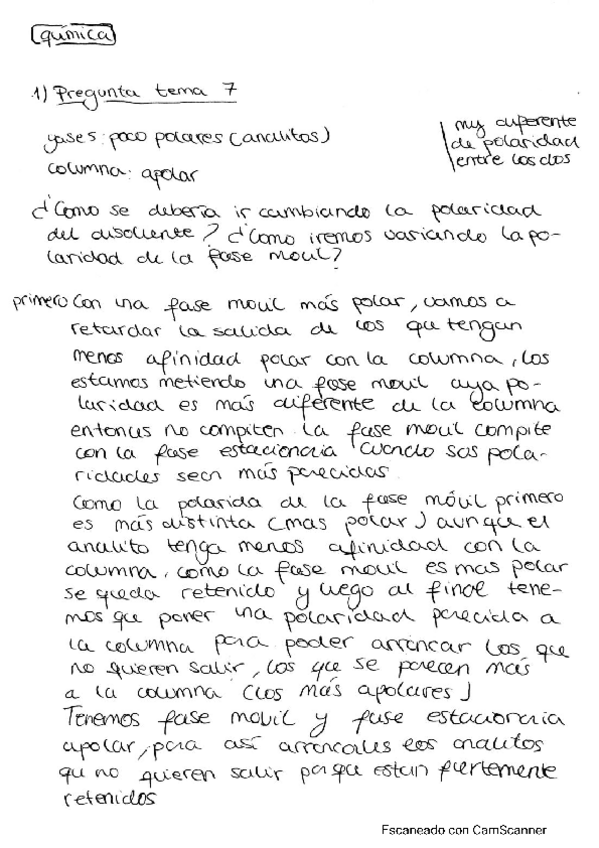 química
1) Pregunta tema 7
gases: poco polares (analitos)
columna: apolar
my diferente
de polaridad
entre los dos
¿Como se debería ir cambiando la polaridad
del disolvente? ¿Como iremos variando la po-
laridad de la fase movil?
primero Con una fase movil más polar, vamos a
retardar la salida de los que tengan
menos afinidad polar con la columna, los
estamos metiendo una fase movil cuya po-
laridad es más diferente de la columna
entonces no compiten. La fase movil compite
con la fase estacionaria cuando sas pola-
ridades sean más parecidas.
Como la polarida de la fase móvil primero
es más distinta (mas polar) aunque el
analito tenga menos afinidad con la
columna, como la fase movil es mas polar
se queda retenido y luego al final tene-
mos que poner una polaridad parecida a
la columna para poder arrancar los que
no quieren salir, los que se parecen más
a la columna (los más apolares)
Tenemos fase movil y fase estacionaria
apolar, para así arrancarles esos analitos
que no quieren salir porque estan fuertemente
retenidos
Escaneado con CamScanner